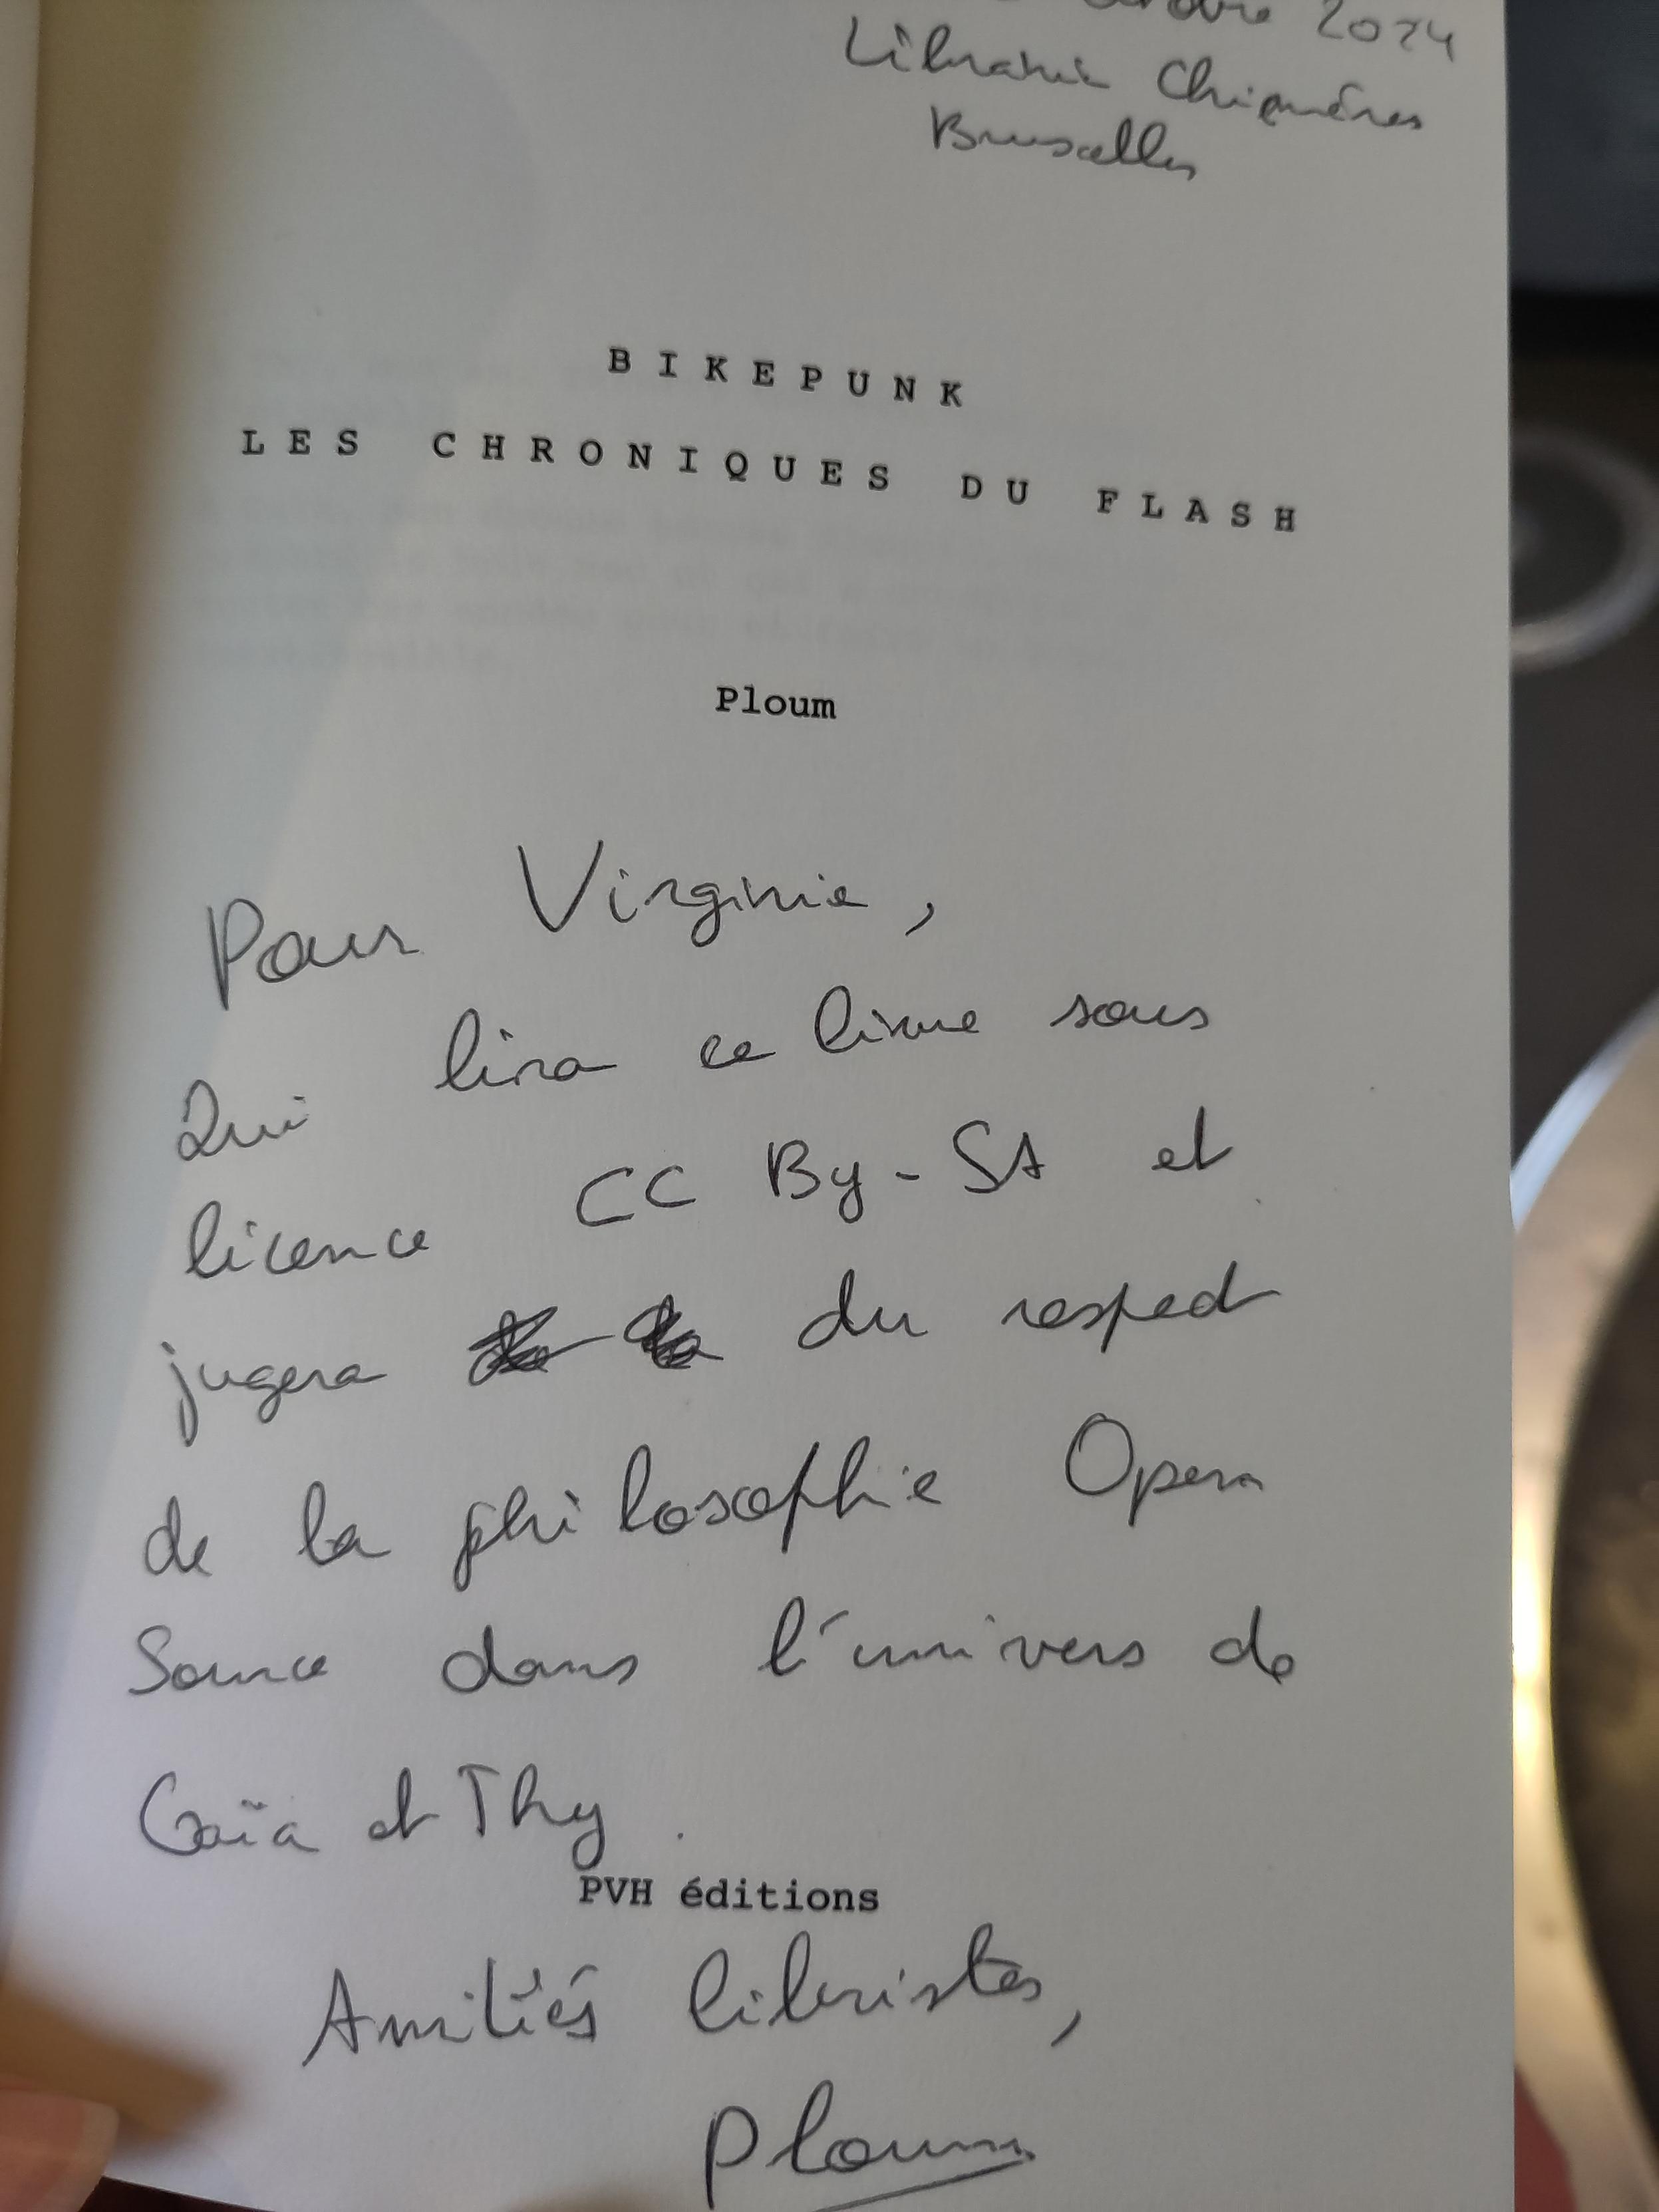 2024
Librairie Chimères
Bruxelles
BIKEPUNK
LES CHRONIQUES DU FLASH
Ploum
Pour Virginie,
Qui lira ce livre sous
licence CC By-SA et
jugera du respect
de la philosophie Open
Source dans l'univers de
Gaïa et Thy.
PVH éditions
Amitiés libristes,
Ploum